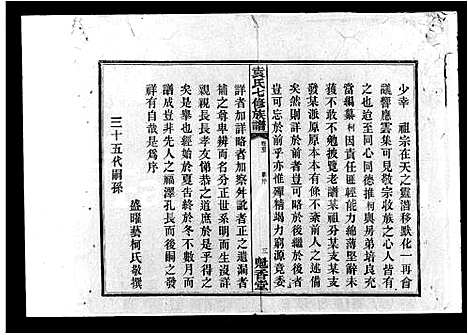 少幸　祖宗在天之靈潛移默化一再會
議響應雲集可見敬宗收族之心人皆有
之也迨至同心同德推柯與易弟培良充
當編纂柯因責任匪輕能力綿薄堅辭未
獲不敢不勉披覽老譜某祖某
發某派原原本本有條不紊前人之述備
矣然則詳於前者豈可略於後繼於後者
豈可忘於前乎亦惟殫精竭力窮源竟委
袁氏七修族譜
卷首
三
魁香堂
詳者加詳略者加察舛說者正之遺漏者
補之尊卑辨而名分正世系明而生沒詳
親親長長孝友悌恭之道庶於是乎得之
是舉也始於夏告終於冬不數月而
譜成豈非先人之福澤孔長而後嗣之禎
祥有自哉是爲序
三十五代嗣孫
盛曜藝柯氏敬撰